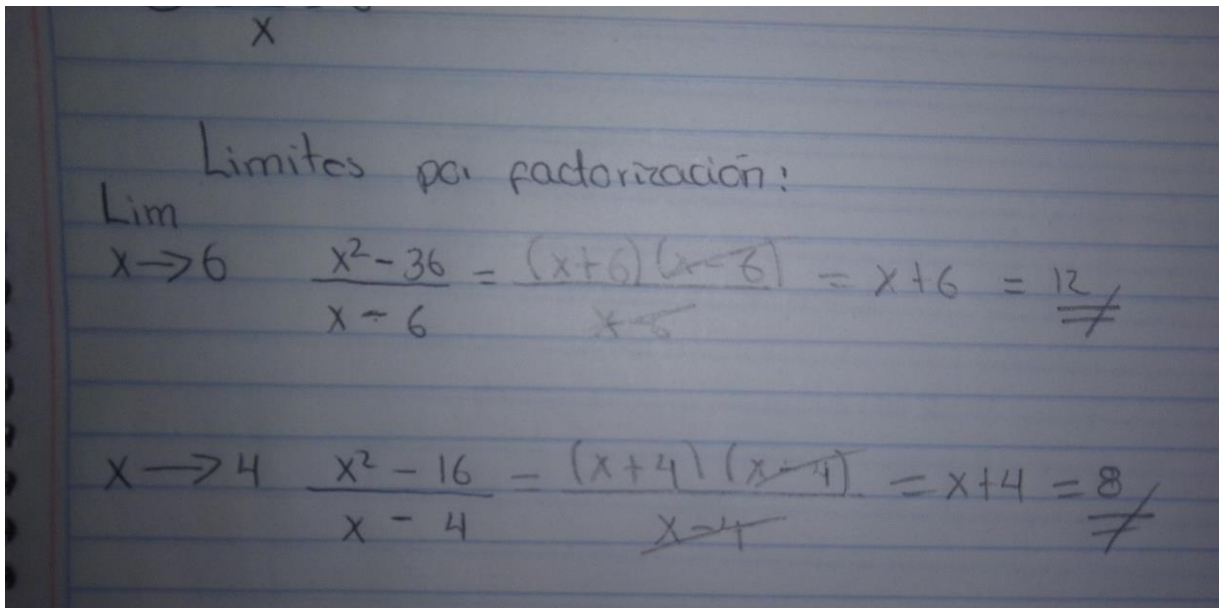 x
Limites por factorización:
Lim
x→6 x²-36 / x-6 = (x+6)(x-6) / x-6 = x+6 = 12
x→4 x²-16 / x-4 = (x+4)(x-4) / x-4 = x+4 = 8